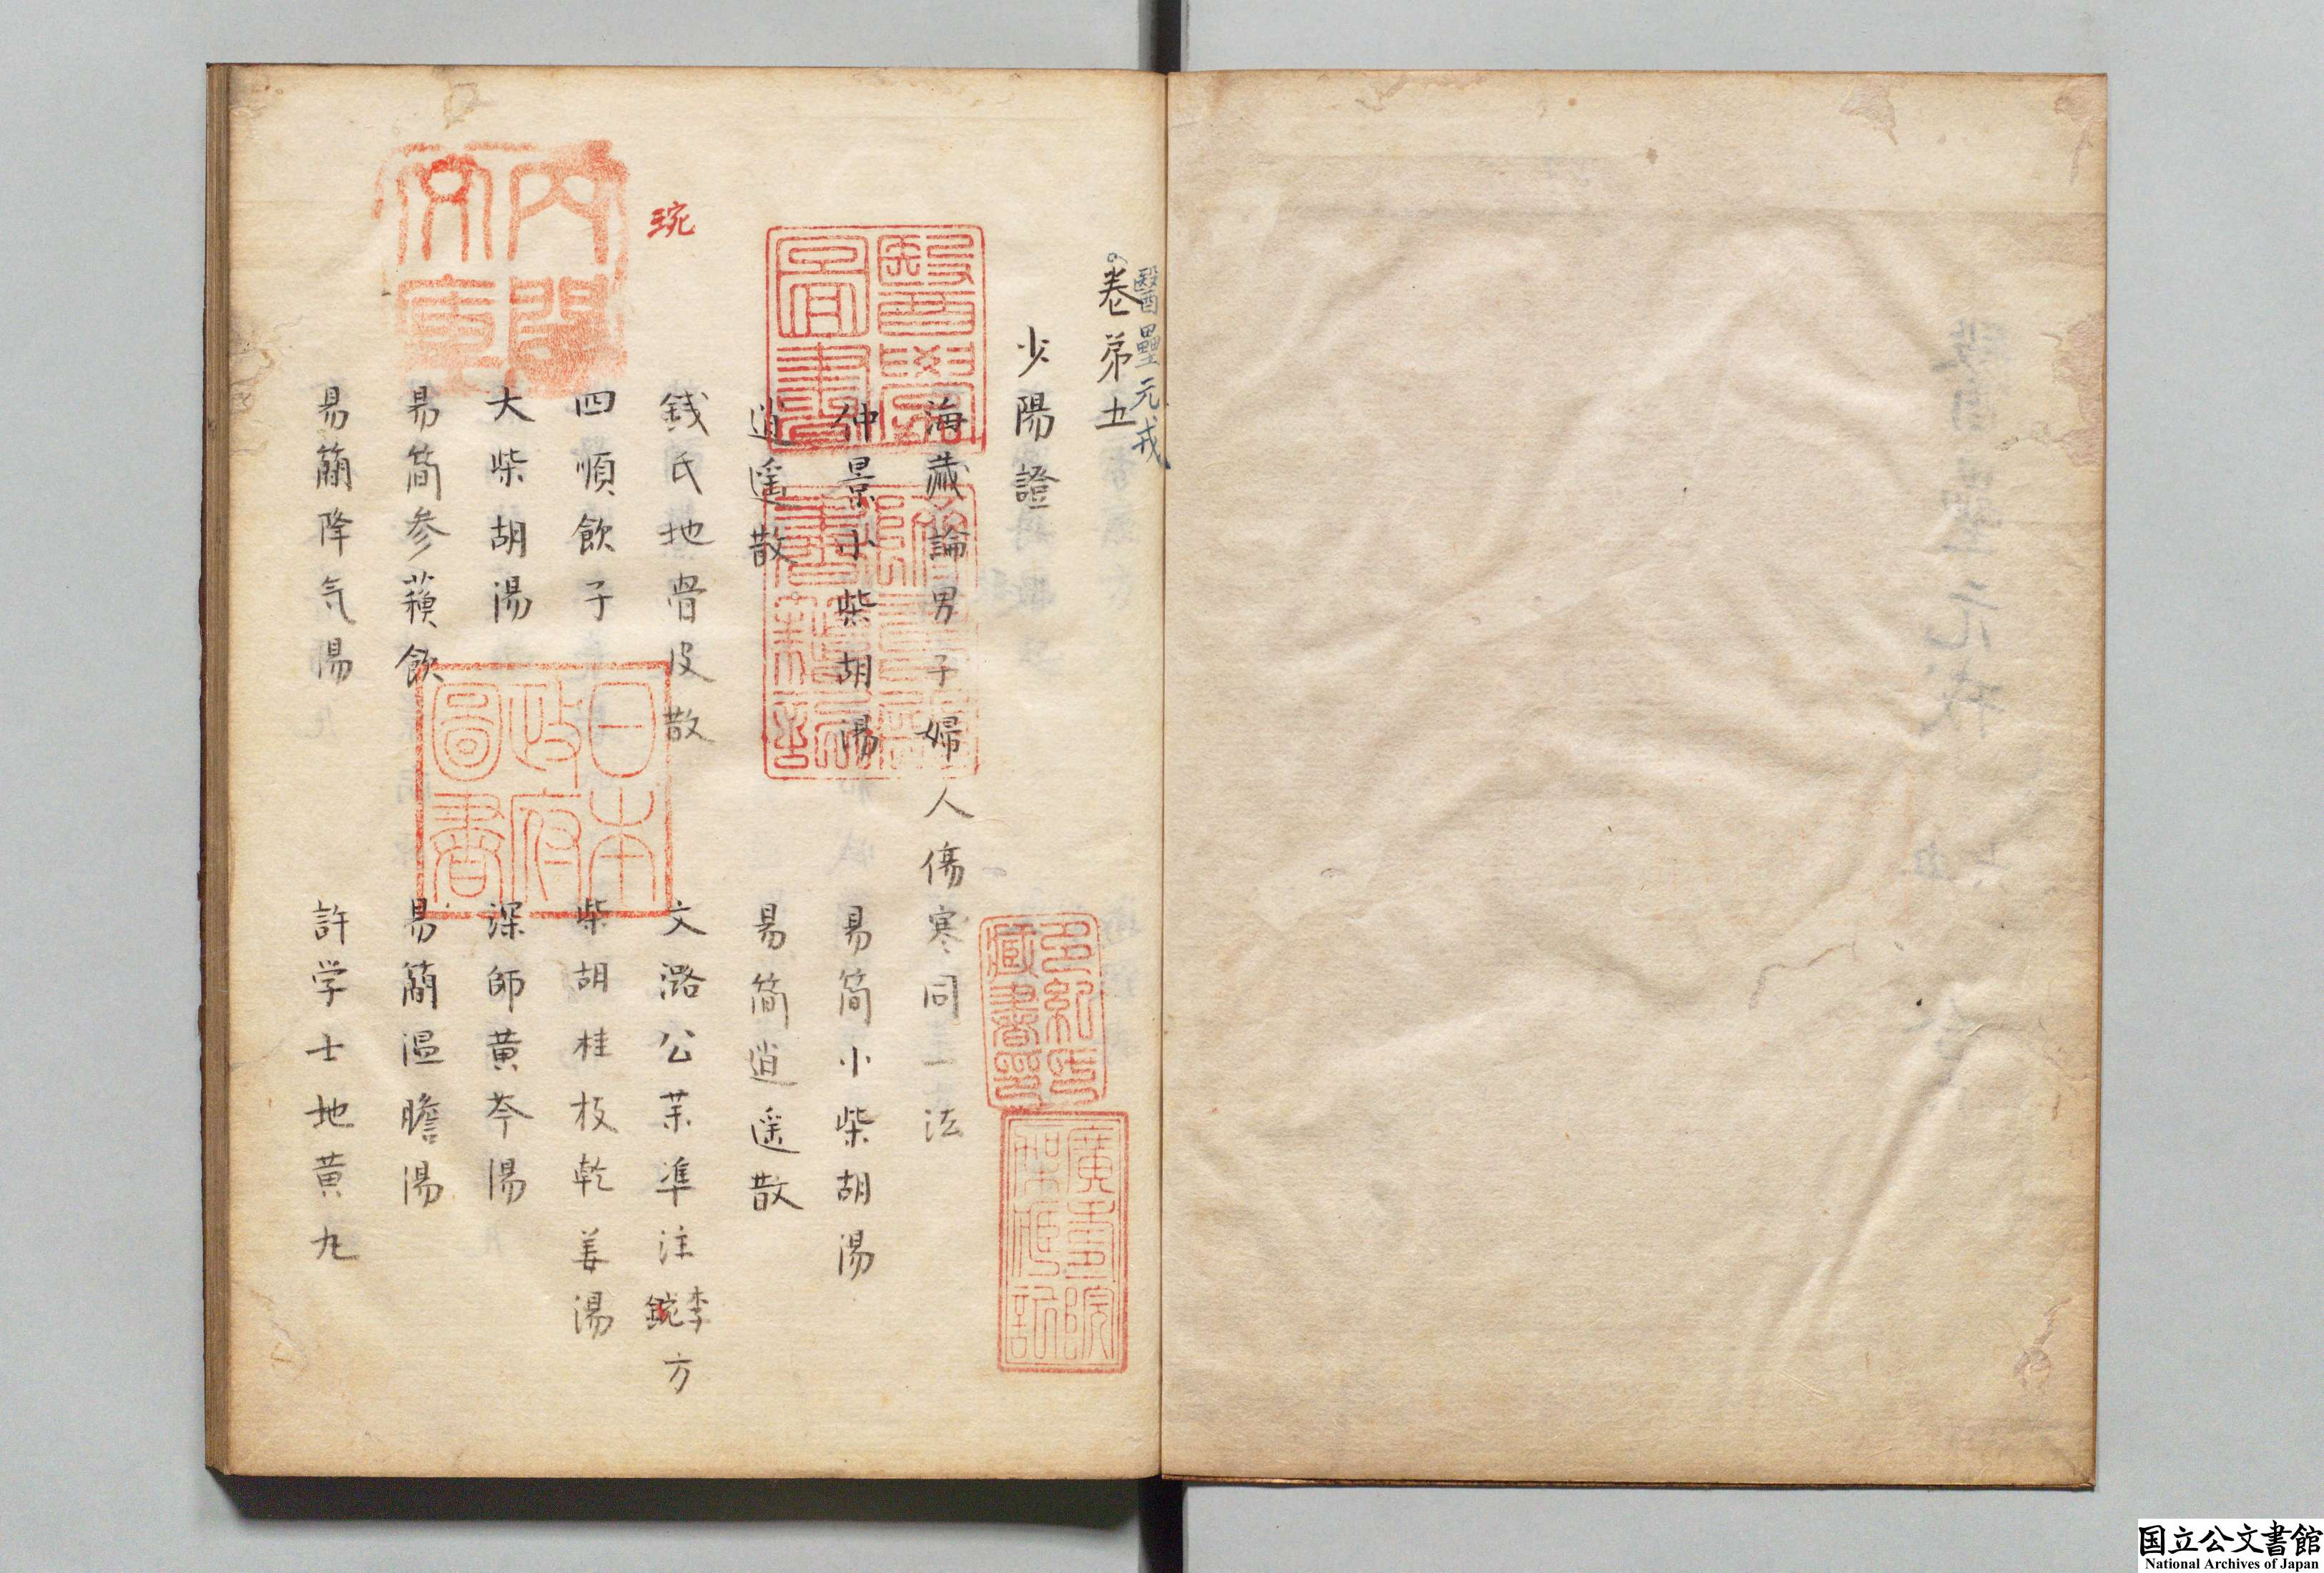 醫壘元戎
卷苐五
少陽證
海藏論男子婦人傷寒同一法
仲景小柴胡湯 易简小柴胡湯
逍遥散 易简逍遥散
銭氏地骨皮散 文潞公茱凖注李鋺方
琬
四順飲子 柴胡桂枝乾姜湯
大柴胡湯 深師黄芩湯
易简参蘓飲 易簡温膽湯
易簡降气湯 許学士地黄丸
醫學圖書
多紀氏藏書印
廣壽院架藏記
日本政府圖書
内閣文庫
国立公文書館
National Archives of Japan